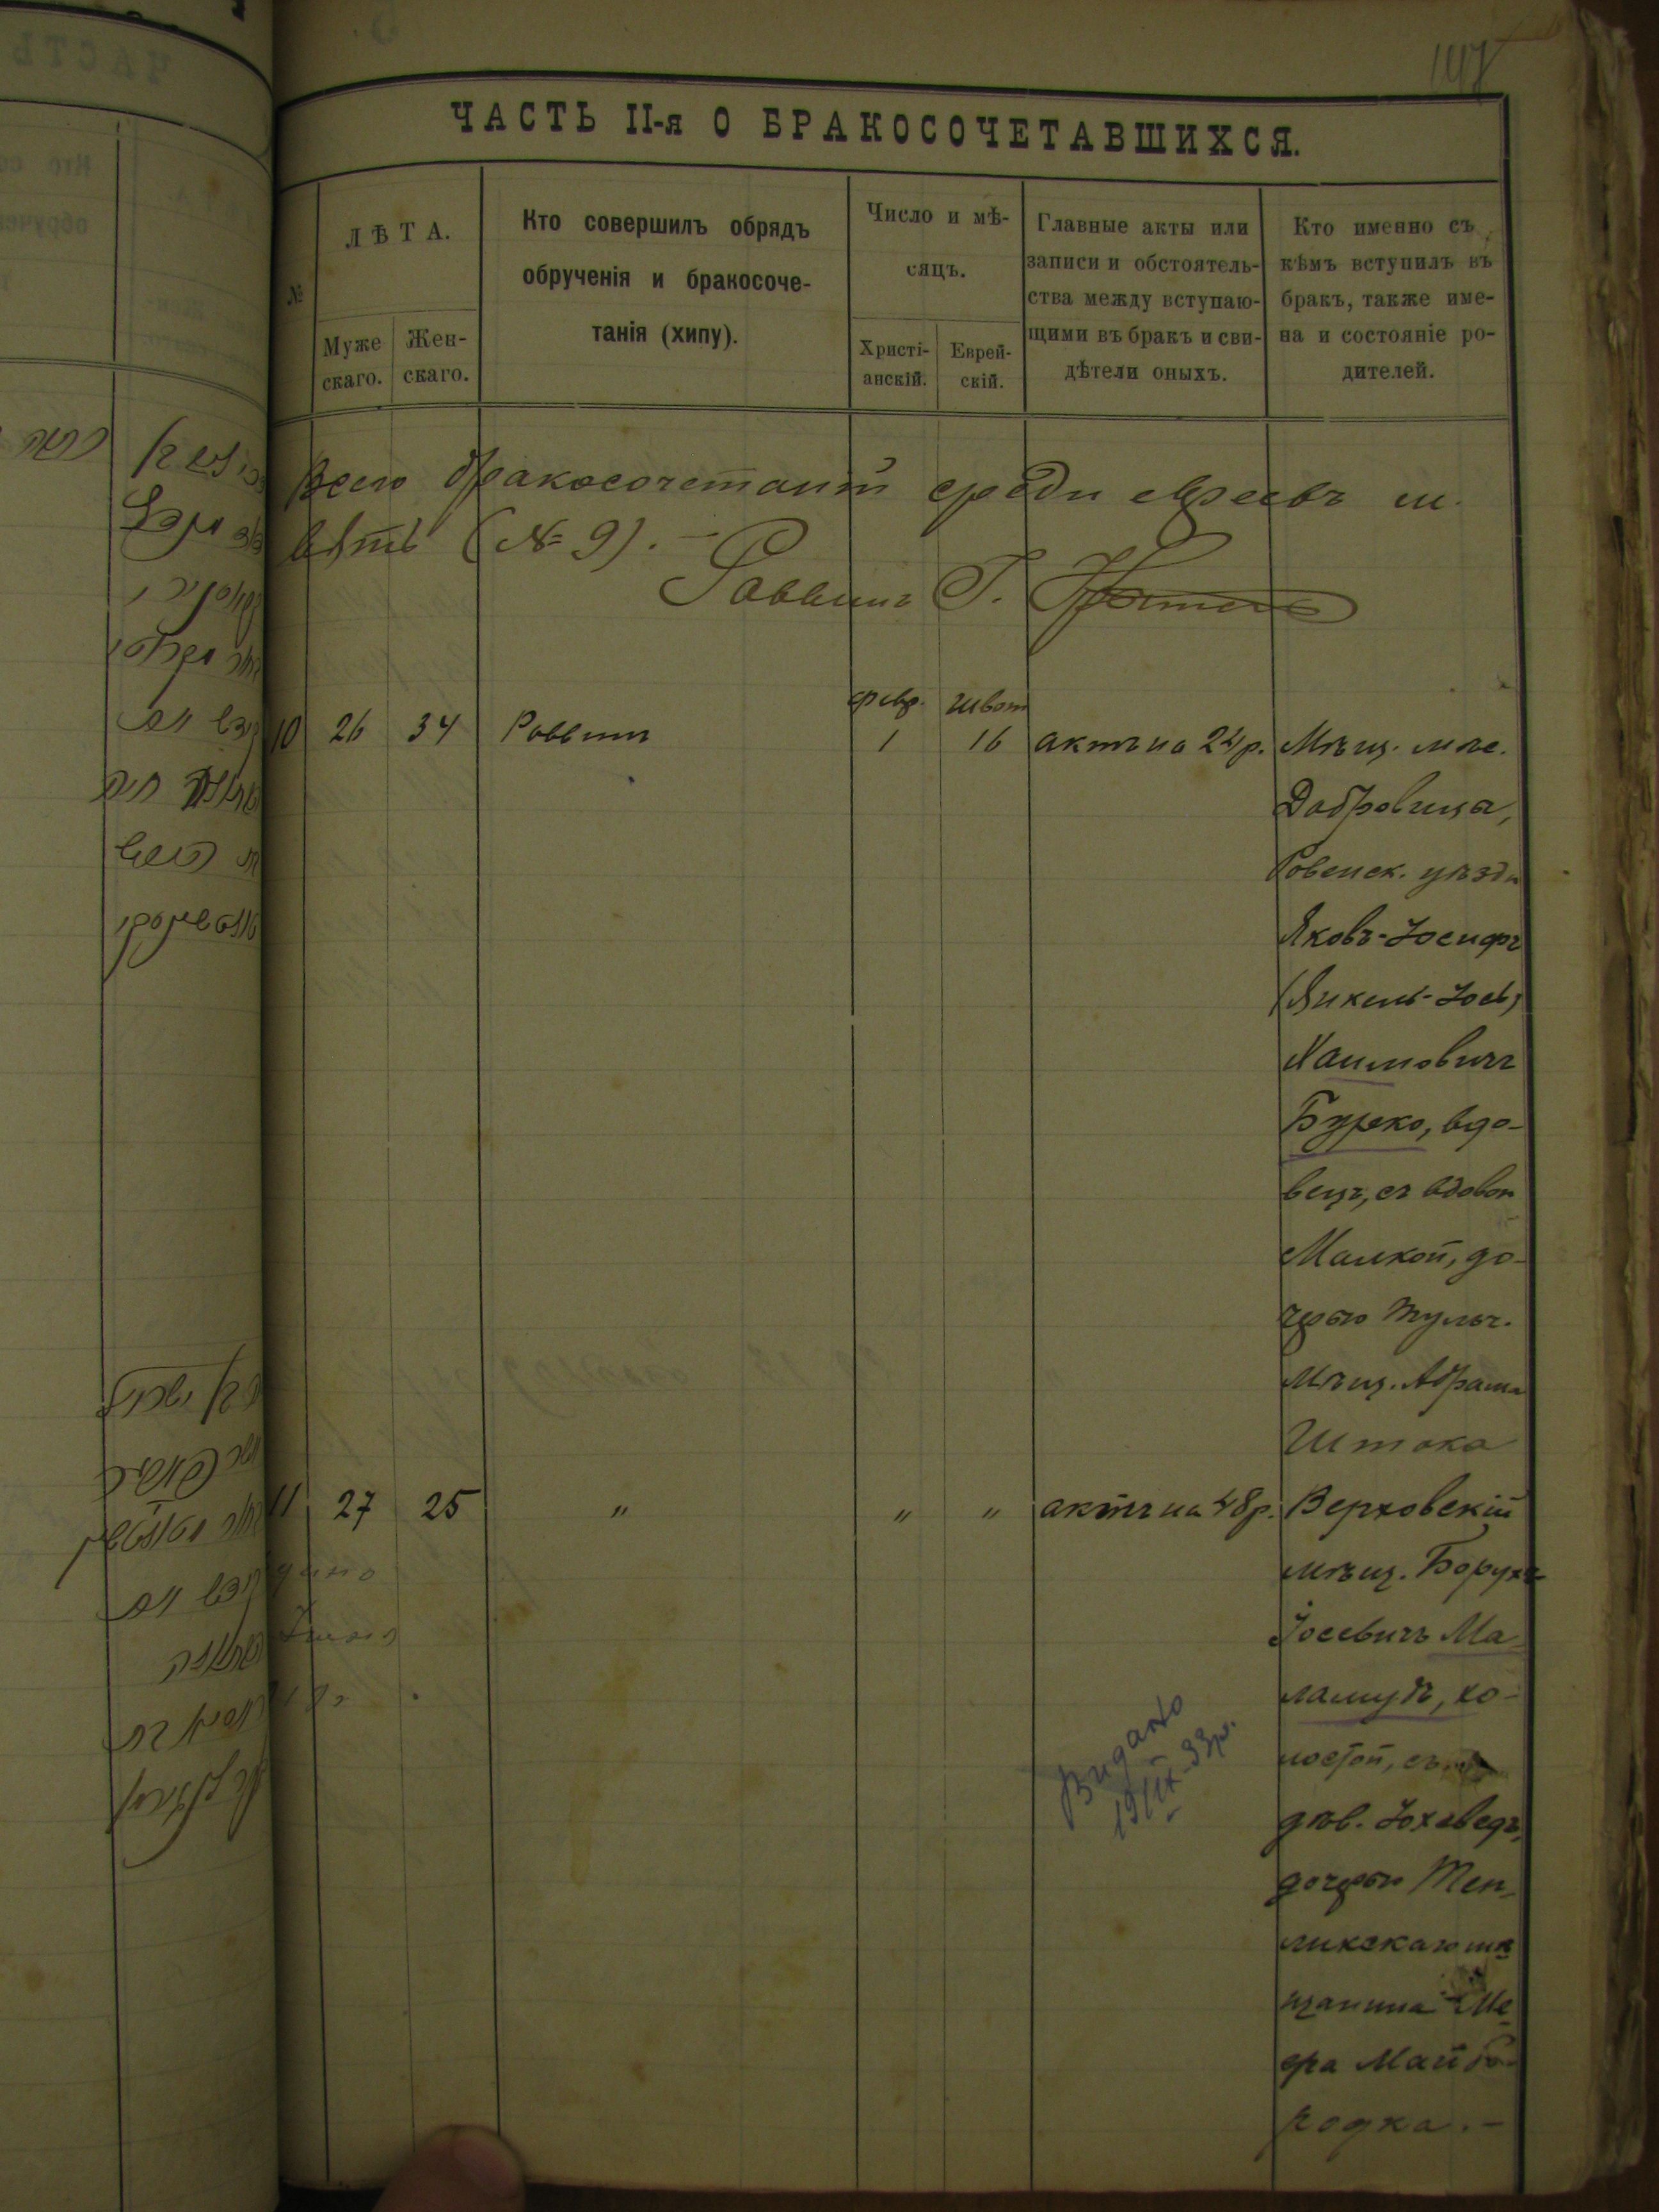 147
ЧАСТЬ II-я О БРАКОСОЧЕТАВШИХСЯ.
№
ЛѢТА.
Муже
скаго.
Жен-
скаго.
Кто совершилъ обрядъ
обрученія и бракосоче-
танія (хипу).
Число и мѣ-
сяцъ.
Христі-
анскій.
Еврей-
скій.
Главные акты или
записи и обстоятель-
ства между вступаю-
щими въ бракъ и сви-
дѣтели оныхъ.
Кто именно съ
кѣмъ вступилъ въ
бракъ, также име-
на и состояніе ро-
дителей.
Всего бракосочетаній среди евреевъ
(№ 9). –
Раввинъ
февр. Шват
10 26 34 Раввинъ 1 16 актъ на 24 р. Мѣщ. мѣс.
Домбровица,
Ровенск. уѣзда
Яковъ-Іосифъ
(Янкель-Іось)
Хаимовичъ
Бурко, вдо-
вецъ, съ вдовой
Малкой, до-
черью Тульч.
мѣщ. Абрама
Штока
11 27 25 " " " актъ на 48 р. Верховскій
мѣщ. Борухъ
Іосевичъ Ма-
ламудъ, хо-
лостой, съ
дѣв. Іохеведъ,
дочерью Теп-
ликскаго мѣ-
щанина Ме-
ера Майбо-
родка. –
Видано
19/IX-33р.